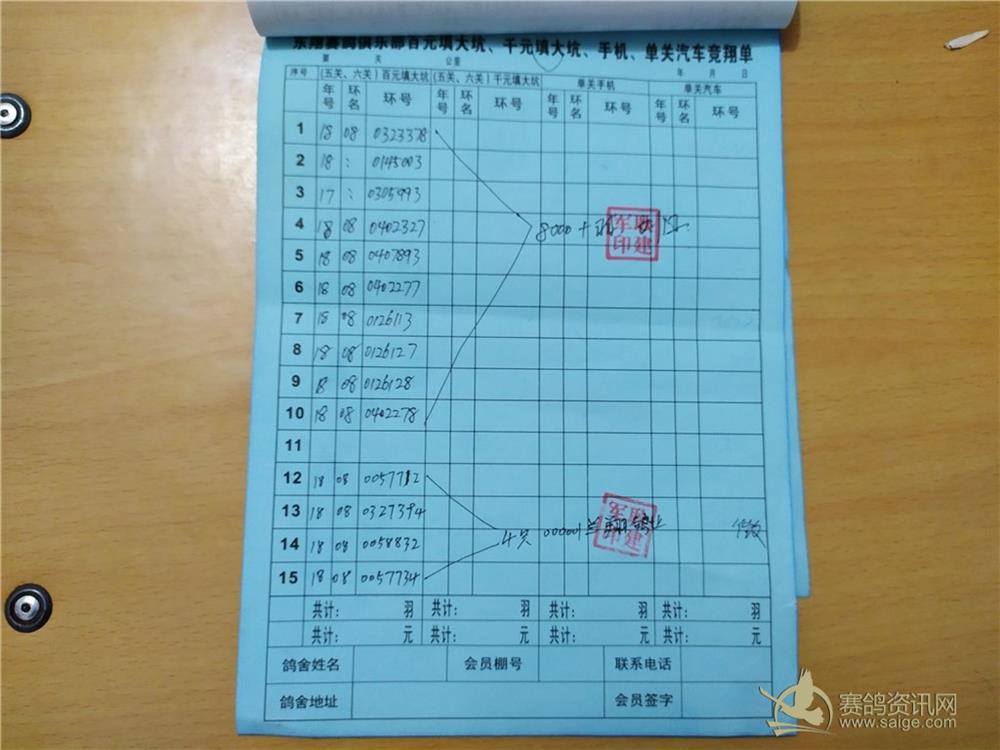 东翔赛鸽俱乐部百元填大坑、千元填大坑、手机、单关汽车竞翔单
第 关 公里 年 月 日
序号 (五关、六关)百元填大坑 (五关、六关)千元填大坑 单关手机 单关汽车
年号 环名 环号 年号 环名 环号 年号 环名 环号 年号 环名 环号
1 18 08 0323378
2 18 : 0145003
3 17 : 0305993
4 18 08 0402327
8000+
军殿印建
5 18 08 0407893
6 18 08 0402277
7 18 08 0126113
8 18 08 0126127
9 18 08 0126128
10 18 08 0402278
11
12 18 08 0057712
13 18 08 0327394
14 18 08 0058832
4只 000001 翔鸽业
15 18 08 0057734
共计: 羽 共计: 羽 共计: 羽 共计: 羽
共计: 元 共计: 元 共计: 元 共计: 元
鸽舍姓名 会员棚号 联系电话
鸽舍地址 会员签字
赛鸽资讯网
www.saige.com